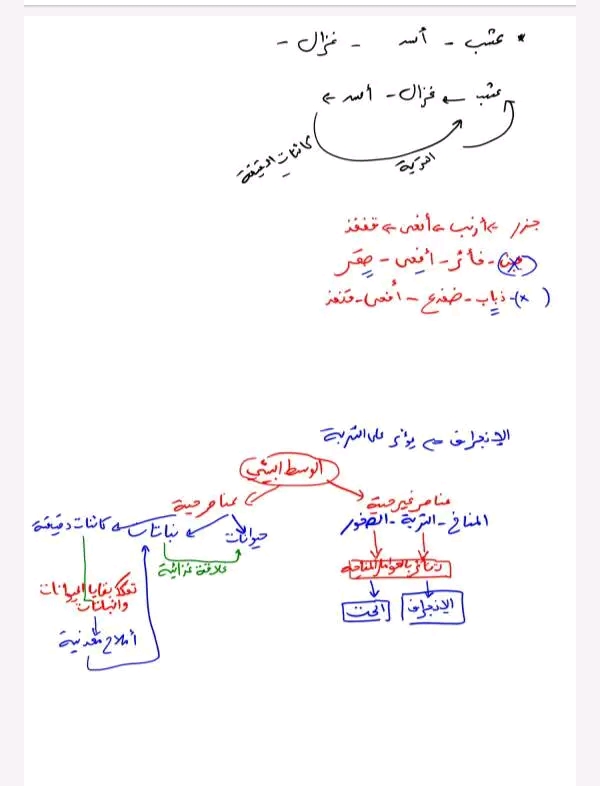 * عشب - أسد - غزال -
عشب ← غزال - أسد ←
التربة
كائنات الدقيقة
جزر ← أرنب ← أفعى ← قنفذ
- فأر - أفعى - صقر
(x) - ذباب - ضفدع - أفعى - قنفذ
الإنجراف ⇐ يؤثر على التربة
الوسط البيئي
عناصر غير حية
عناصر حية
المناخ - التربة - الصخور
حيوانات
نباتات
كائنات دقيقة
علاقة غذائية
تتأثر بالعوامل المناخية
تفكك بقايا الحيوانات
والنباتات
الإنجراف
الحت
أملاح معدنية